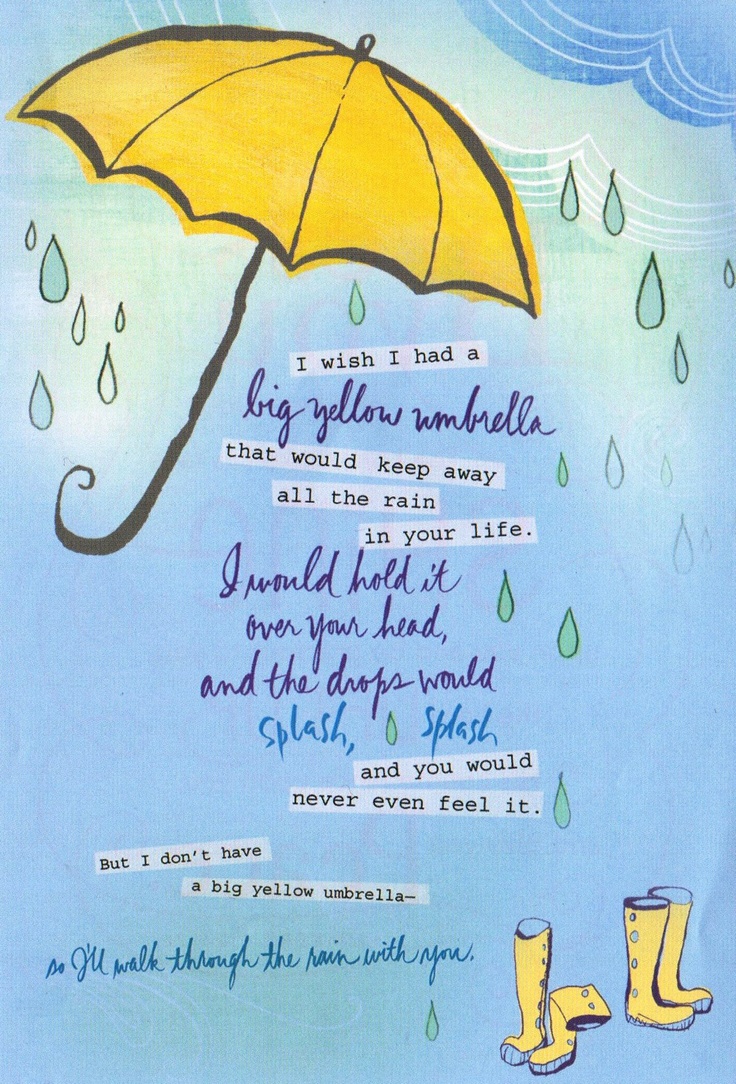 I wish I had a
big yellow umbrella
that would keep away
all the rain
in your life.
I would hold it
over your head,
and the drops would
splash, splash
and you would
never even feel it.
But I don't have
a big yellow umbrella—
so I'll walk through the rain with you.